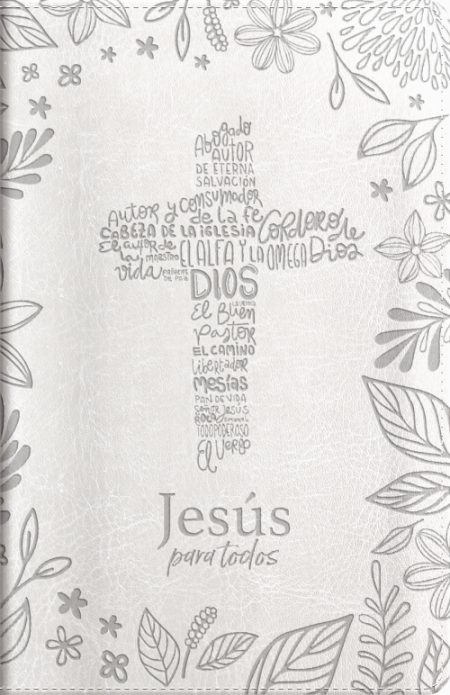 Abogado
AUTOR
DE ETERNA
SALVACIÓN
Autor y Consumador
de la fe
CABEZA DE LA IGLESIA
Cordero de
Dios
El autor de
la vida
MAESTRO
PRÍNCIPE
DE PAZ
EL ALFA Y LA OMEGA
DIOS
El Buen
Pastor
EL CAMINO
libertador
mesías
PAN DE VIDA
SEÑOR JESÚS
ROCA
TODOPODEROSO
El Verbo
Jesús
para todos